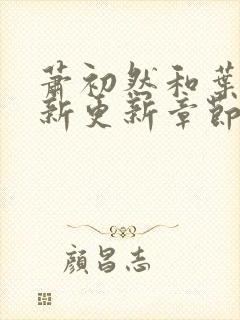 萧初然和葉
新更新章節
顏昌志